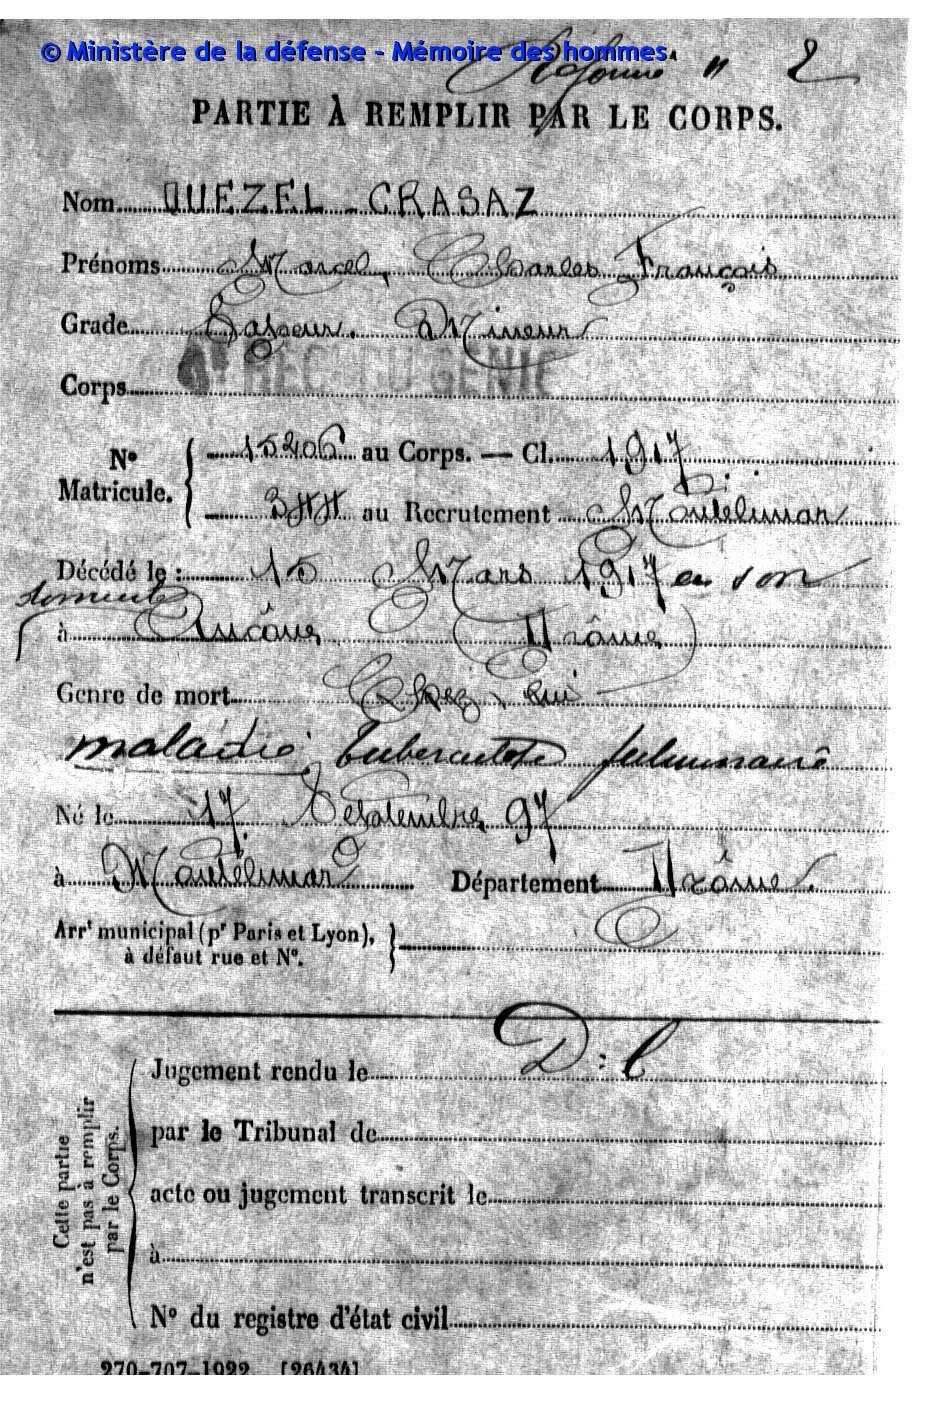 © Ministère de la défense - Mémoire des hommes
Réponse " 2
PARTIE À REMPLIR PAR LE CORPS.
Nom QUEZEL-CRASAZ
Prénoms Marcel, Charles François
Grade Sapeur. Mineur
Corps RÉG. DU GÉNIE
No Matricule. 15206 au Corps. — Cl. 1917
344 au Recrutement Montélimar
Décédé le : 15 Mars 1917 en son
domicile
à Ancône (Drôme)
Genre de mort Chez Lui
maladie: tuberculose pulmonaire
Né le 17 Septembre 97
à Montélimar Département Drôme.
Arrt municipal (pr Paris et Lyon),
à défaut rue et No.
D: C
Jugement rendu le
par le Tribunal de
acte ou jugement transcrit le
à
No du registre d'état civil
Cette partie
n'est pas à remplir
par le Corps.
270-707-1922. [26434]